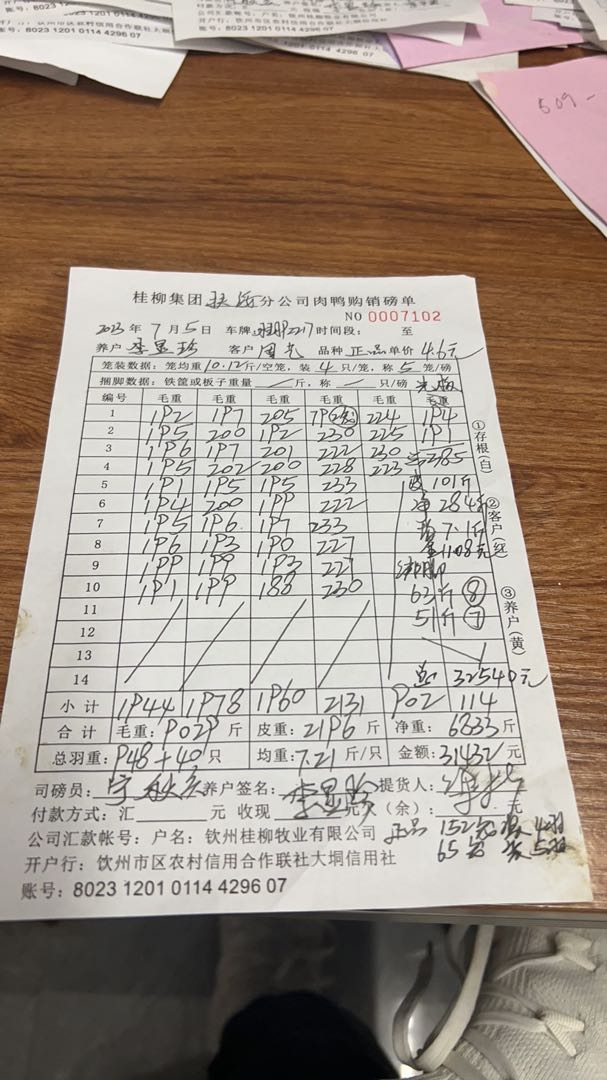 账号：8023 1201 0114 4296 07
账号：8023 1201 0114 4296 07
509-
桂柳集团扶绥分公司肉鸭购销磅单
NO 0007102
2023年7月5日 车牌 2217 时间段： 至
养户 李显珍 客户 周光 品种 正品 单价 4.6元
笼装数据：笼均重10.12斤/空笼，装4只/笼，称5笼/磅
捆脚数据：铁筐或板子重量 / 斤，称 / 只/磅
编号 毛重 毛重 毛重 毛重 毛重 毛重
1 192 197 205 224 194
2 195 200 192 230 225 191
3 196 197 201 222 230
4 195 202 200 228 223 385
5 191 195 195 233 皮 101斤
6 194 200 199 222 净 284斤
7 195 196 197 233 均 7.1斤
8 196 193 190 227 1108元
9 199 199 193 227
10 191 199 188 230 63斤 ⑧
11 51斤 ⑦
12
13
14 总 32540元
小计 1944 1978 1960 2131 902 114
合计 毛重：9029斤 皮重：2196斤 净重：6833斤
总羽重：948+40只 均重：7.21斤/只 金额：31432元
①存根(白)
②客户(红)
③养户(黄)
司磅员： 养户签名：李显珍 提货人：
付款方式：汇 元 收现 元 欠（余）： 元
公司汇款帐号：户名：钦州桂柳牧业有限公司 正品 152笼 装4羽
开户行：钦州市区农村信用合作联社大垌信用社 65笼 装5羽
账号：8023 1201 0114 4296 07